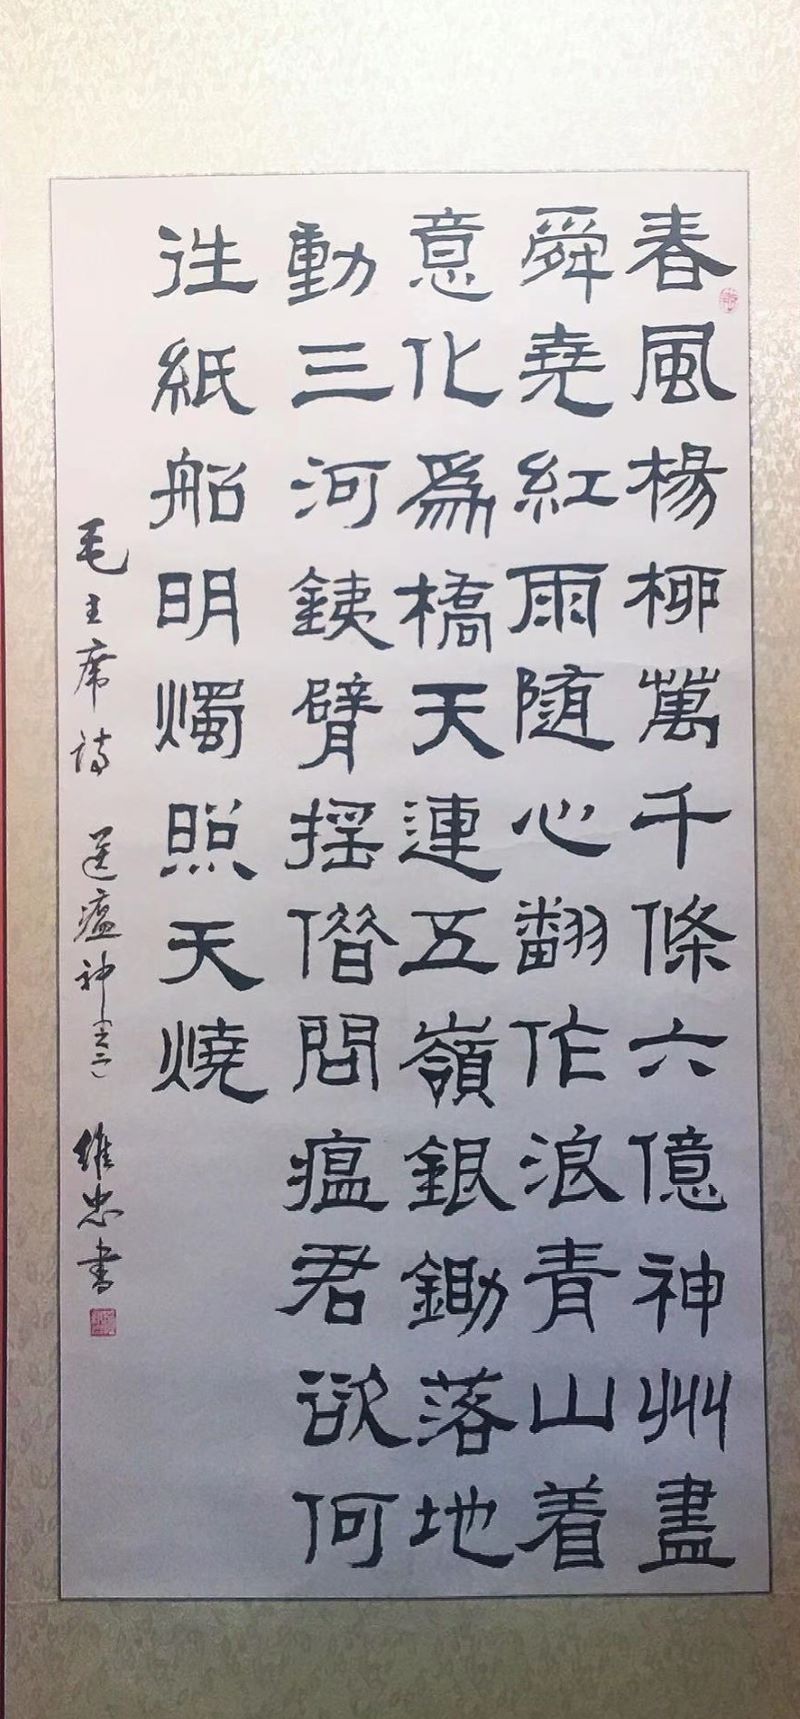 春風楊柳萬千條六億神州盡
舜堯紅雨随心翻作浪青山着
意化為橋天連五嶺銀鋤落地
動三河鐵臂揺借問瘟君欲何
往紙船明燭照天燒
毛主席詩 送瘟神（之二） 維忠書